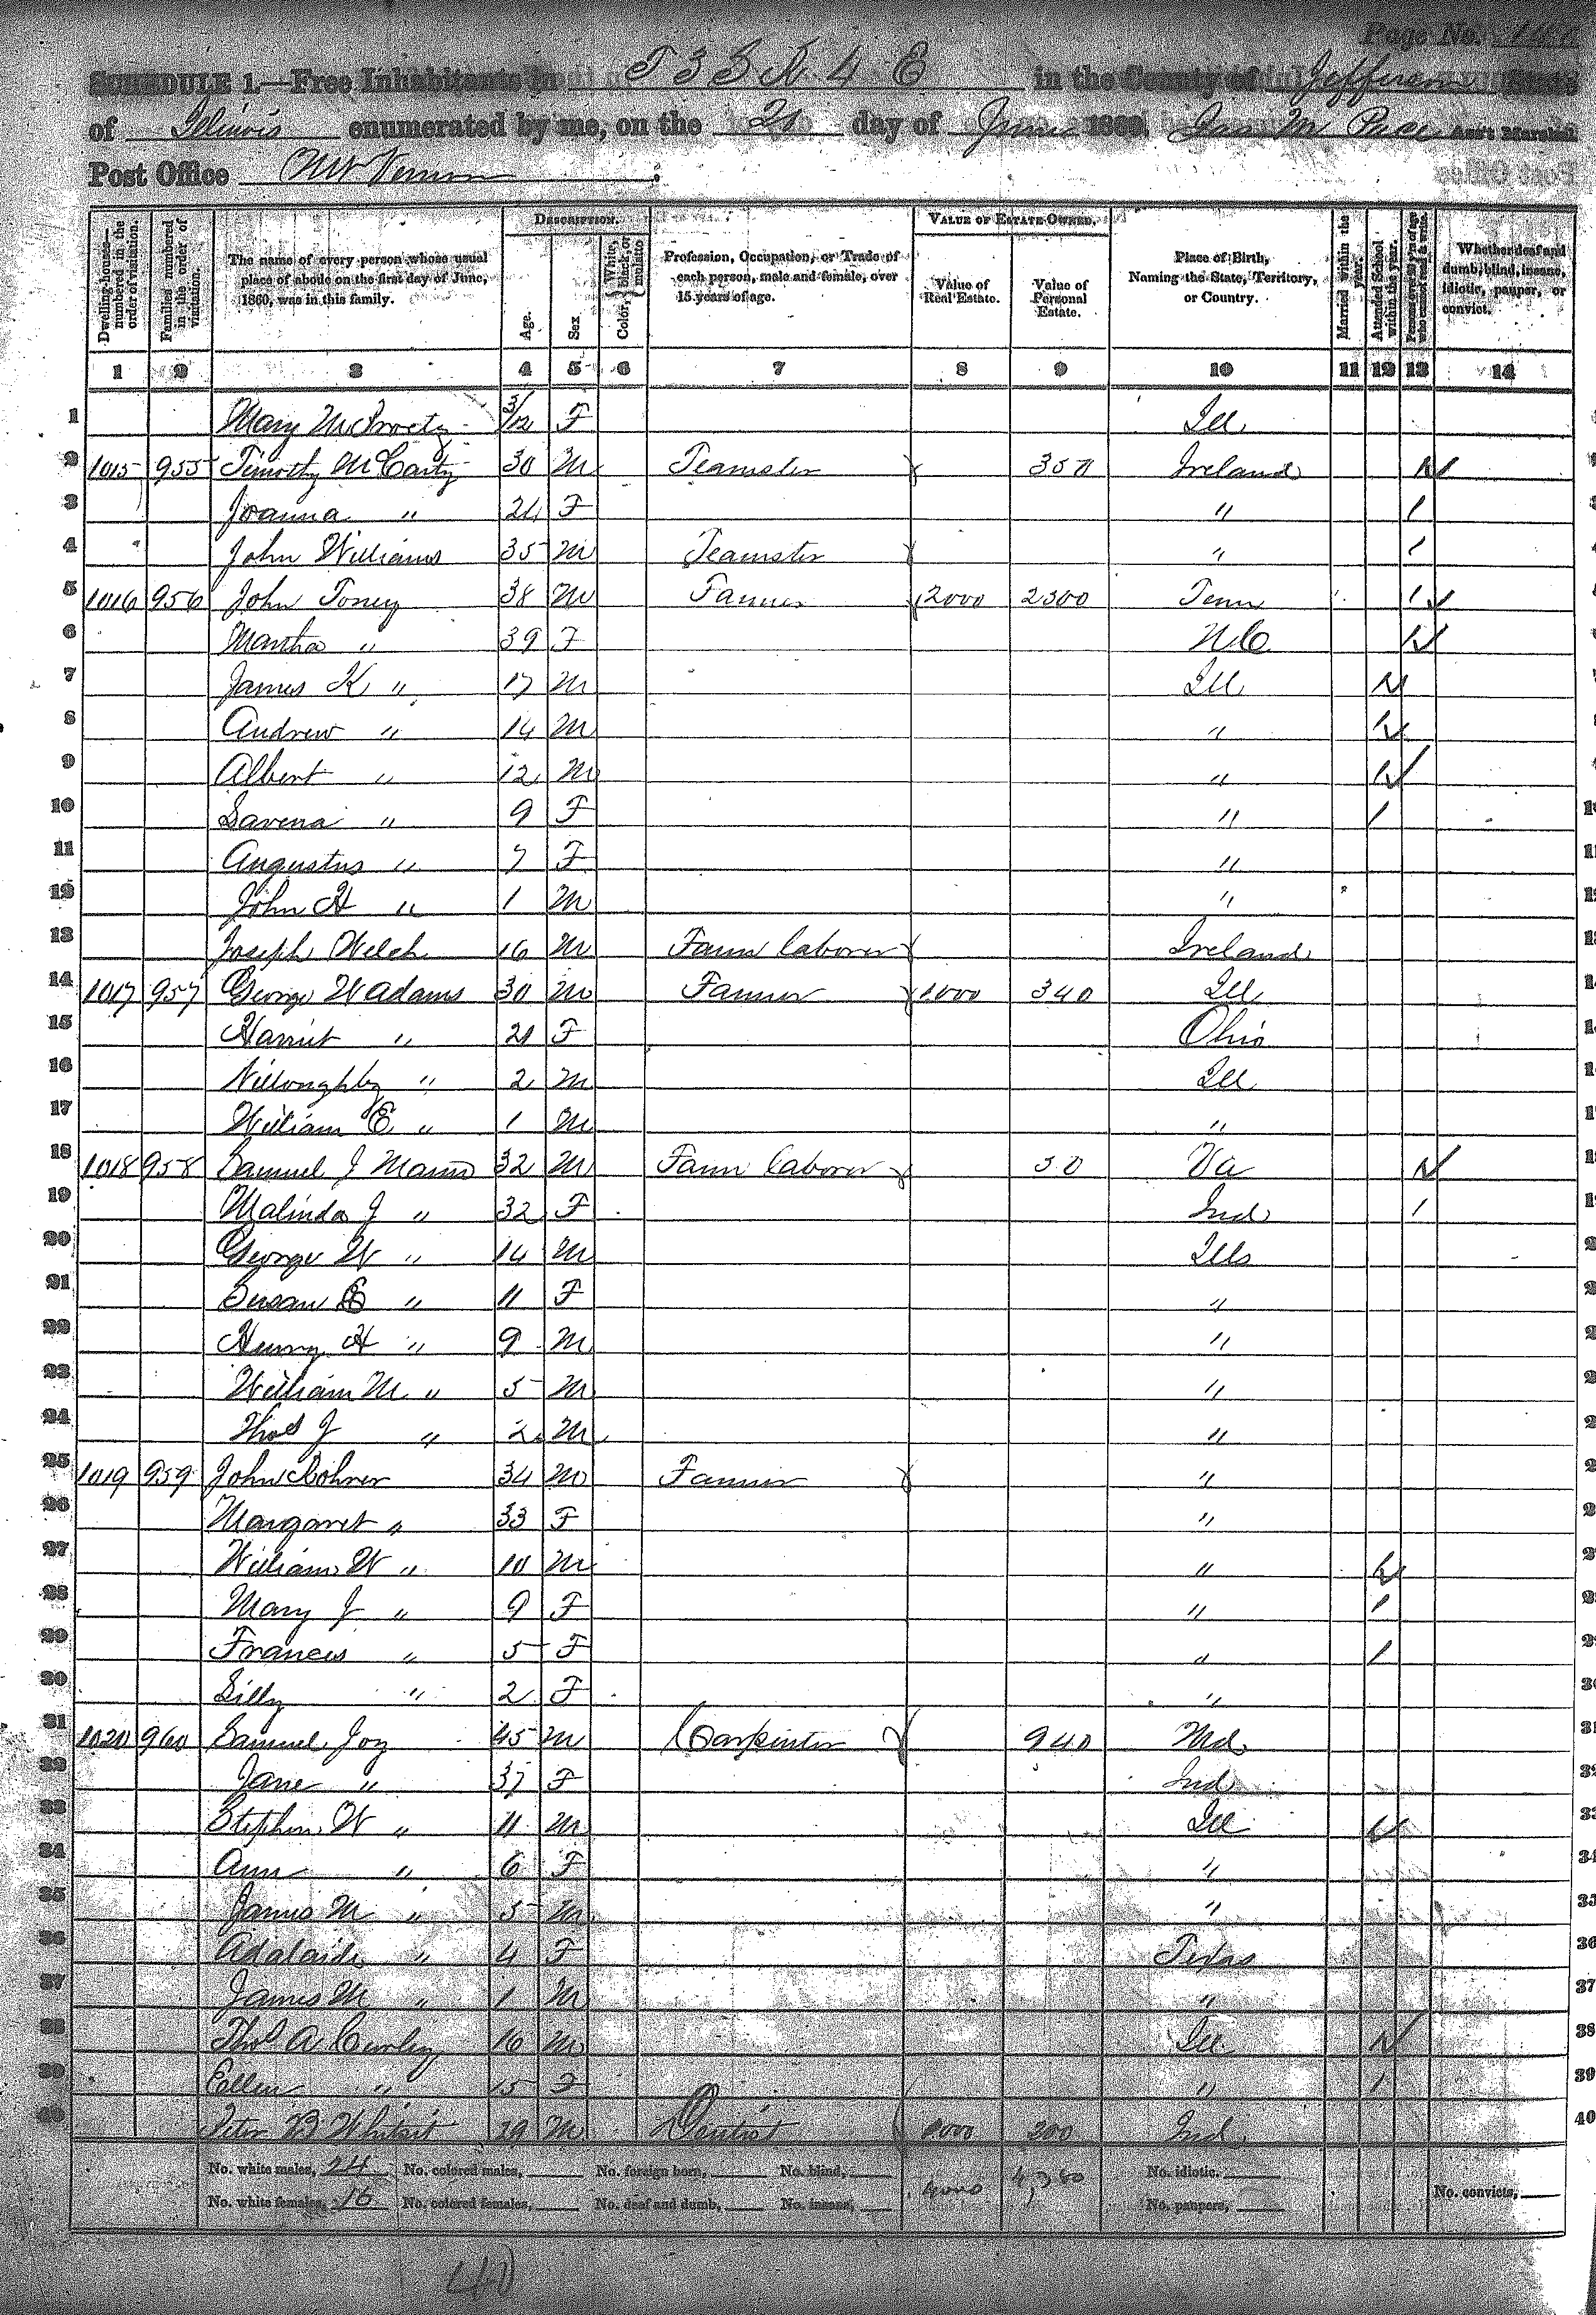 Page No.
SCHEDULE 1.—Free Inhabitants in T 3 S R 4 E in the County of Jefferson State
of Illinois enumerated by me, on the 21 day of June 1860. Jas M Pace Ass't Marshal
Post Office Mt Vernon
Dwelling-houses—numbered in the order of visitation.
Families numbered in the order of visitation.
The name of every person whose usual place of abode on the first day of June, 1860, was in this family.
DESCRIPTION.
Age.
Sex
Color, White, black, or mulatto
Profession, Occupation, or Trade of each person, male and female, over 15 years of age.
VALUE OF ESTATE OWNED.
Value of Real Estate.
Value of Personal Estate.
Place of Birth, Naming the State, Territory, or Country.
Married within the year.
Attended School within the year.
Persons over 20 y'rs of age who cannot read & write.
Whether deaf and dumb, blind, insane, idiotic, pauper, or convict.
1 2 3 4 5 6 7 8 9 10 11 12 13 14
1 Mary 3/12 F Ill
2 1015 955 Timothy McCarty 30 M Teamster 350 Ireland 1
3 Joanna " 24 F " 1
4 John Williams 35 M Teamster " 1
5 1016 956 John Toney 38 M Farmer 2000 2300 Tenn 1
6 Martha " 39 F N C 1
7 James K " 17 M Ill 1
8 Andrew " 14 M " 1
9 Albert " 12 M " 1
10 Savena " 9 F " 1
11 Augustus " 7 F "
12 John H " 1 M "
13 Joseph Welch 16 M Farm laborer Ireland
14 1017 957 George W Adams 30 M Farmer 1000 340 Ill
15 Harriet " 21 F Ohio
16 Willoughby " 2 M Ill
17 William E " 1 M "
18 1018 958 Samuel J Mann 32 M Farm laborer 30 Va 1
19 Malinda J " 32 F Ind 1
20 George W " 14 M Ills
21 Susan E " 11 F "
22 Henry H " 9 M "
23 William M " 5 M "
24 Thos J " 2 M "
25 1019 959 John 34 M Farmer "
26 Margaret " 33 F "
27 William W " 10 M " 1
28 Mary J " 9 F " 1
29 Frances " 5 F " 1
30 Lilly " 2 F "
31 1020 960 Samuel Joy 45 M Carpenter 940 Md
32 Jane " 37 F Ind
33 Stephen W " 11 M Ill 1
34 Ann " 6 F "
35 James M " 5 M "
36 Adalaide " 4 F Texas
37 James M " 1 M "
38 Thos A Curley 16 M Ill 1
39 Ellen " 15 F " 1
40 Peter B Whitsit 29 M Dentist 200 Ind
No. white males, 24 No. colored males, No. foreign born, No. blind, No. idiotic.
No. white females, 16 No. colored females, No. deaf and dumb, No. insane, No. paupers, No. convicts,
40